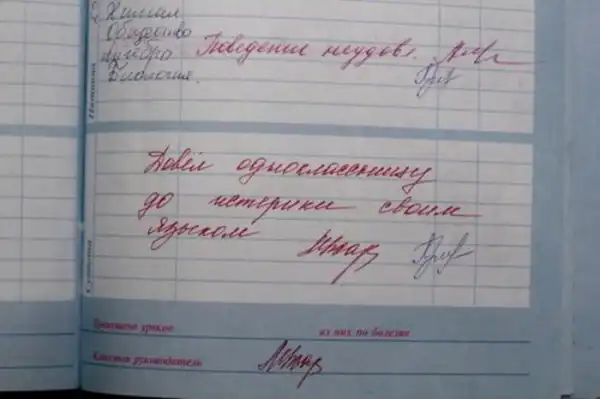 Химия
Общество
алгебра Поведение неудовл.
Биология.
Пятница
Довёл одноклассницу
до истерики своим
языком
Суббота
Пропущено уроков из них по болезни
Классный руководитель